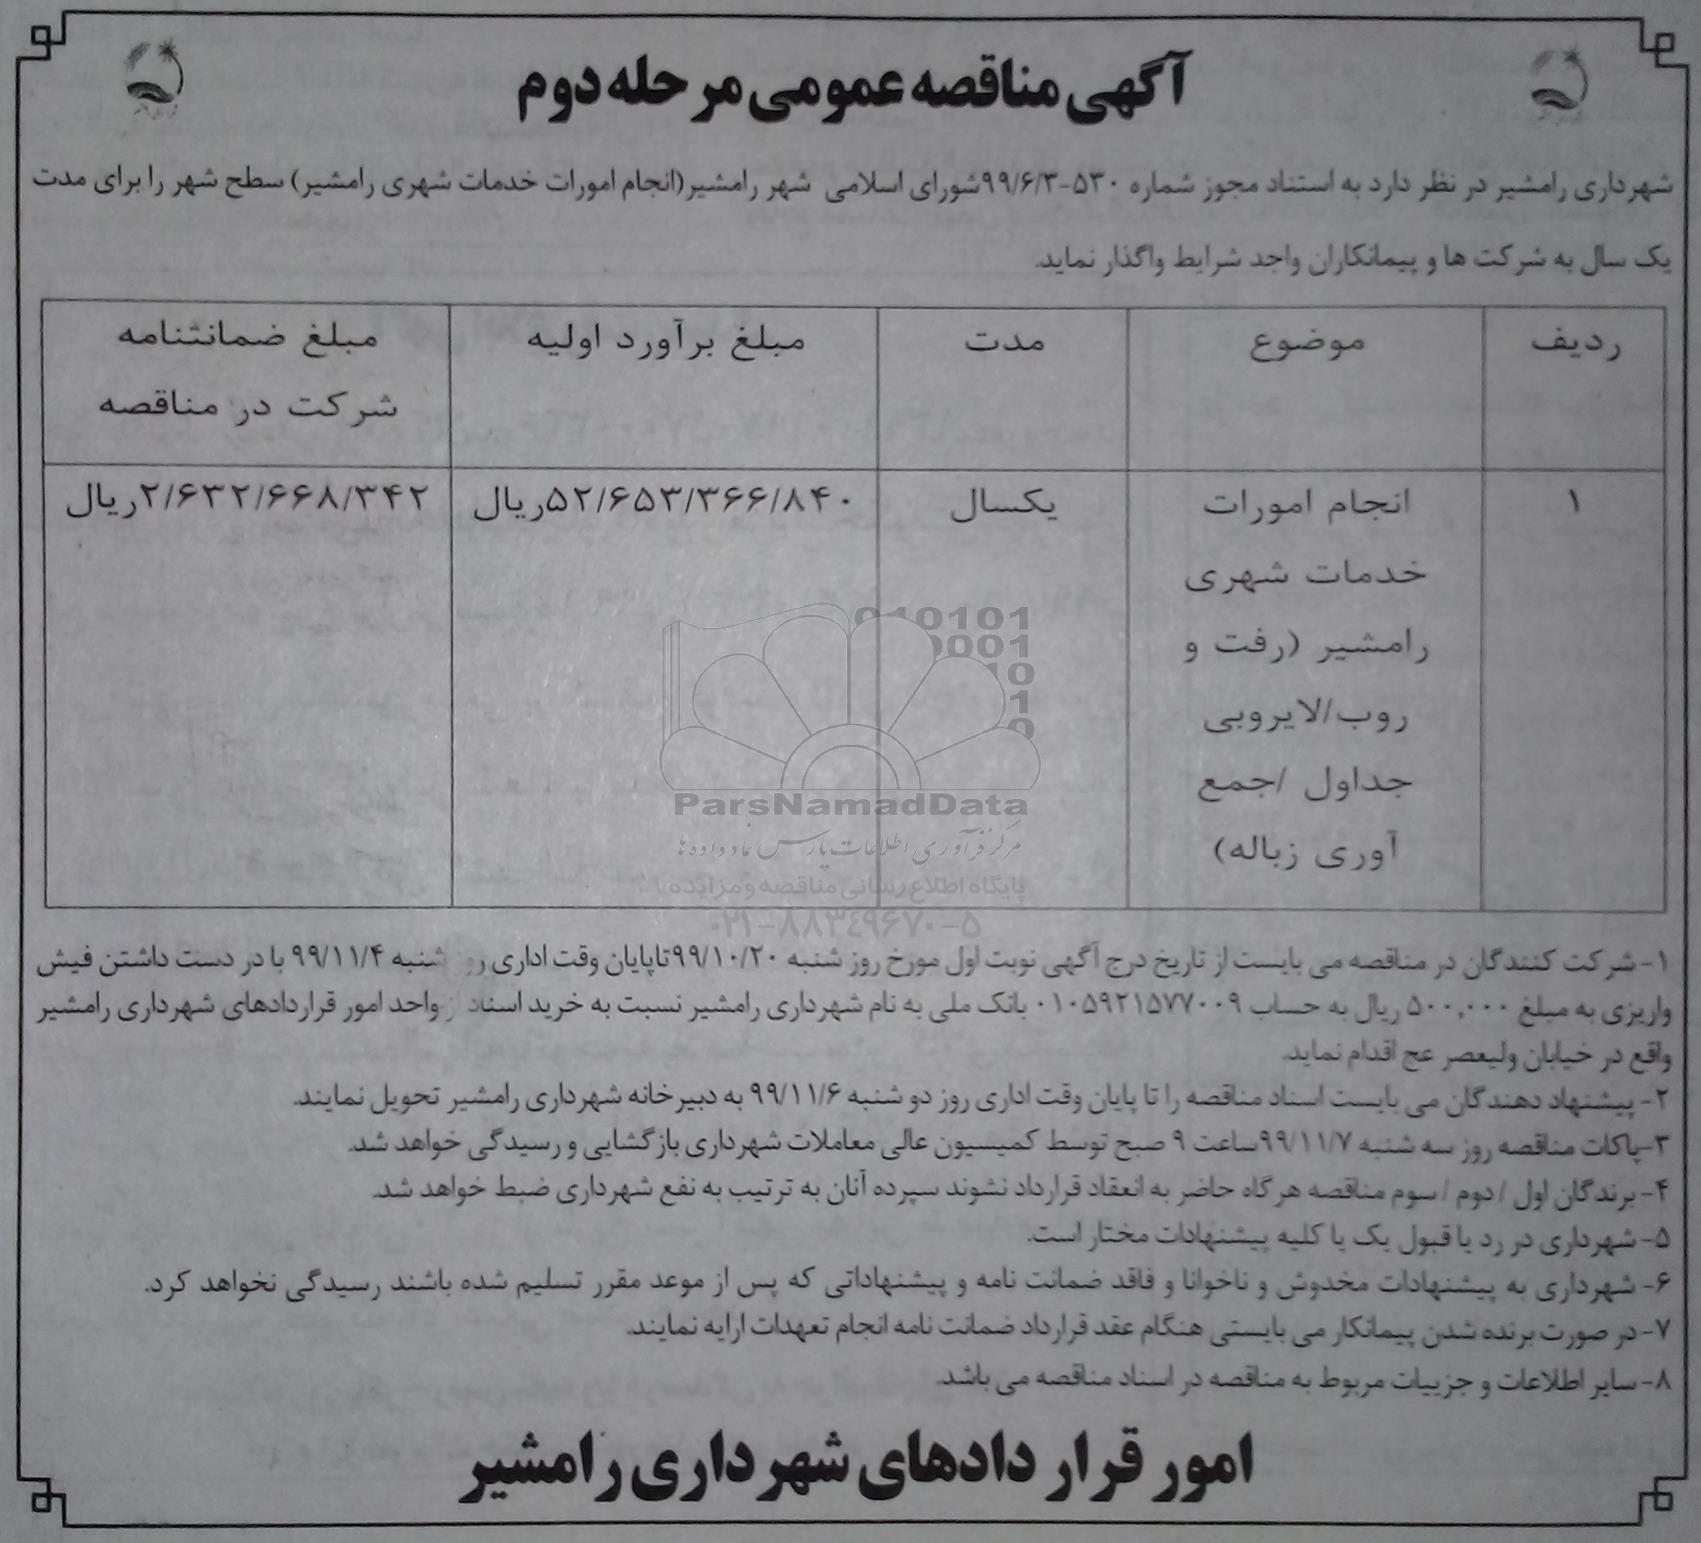 آگهی مناقصه عمومی مرحله دوم
شهرداری رامشیر در نظر دارد به استناد مجوز شماره ۵۳۰-۹۹/۶/۳شورای اسلامی شهر رامشیر(انجام امورات خدمات شهری رامشیر) سطح شهر را برای مدت
یک سال به شرکت ها و پیمانکاران واجد شرایط واگذار نماید.
ردیف موضوع مدت مبلغ برآورد اولیه مبلغ ضمانتنامه
شرکت در مناقصه
۱ انجام امورات یکسال ۵۲/۶۵۳/۳۶۶/۸۴۰ریال ۲/۶۳۲/۶۶۸/۳۴۲ریال
خدمات شهری
رامشیر (رفت و
روب/لایروبی
جداول /جمع
آوری زباله)
010101
0001
10
1
0
ParsNamadData
مرکز فرآوری اطلاعات پارس نماد داده ها
پایگاه اطلاع رسانی مناقصه و مزایده
۰۲۱-۸۸۳۴۹۶۷۰-۵
۱- شرکت کنندگان در مناقصه می بایست از تاریخ درج آگهی نوبت اول مورخ روز شنبه ۹۹/۱۰/۲۰تاپایان وقت اداری روز شنبه ۹۹/۱۱/۴ با در دست داشتن فیش
واریزی به مبلغ ۵۰۰,۰۰۰ ریال به حساب ۰۱۰۵۹۲۱۵۷۷۰۰۹ بانک ملی به نام شهرداری رامشیر نسبت به خرید اسناد از واحد امور قراردادهای شهرداری رامشیر
واقع در خیابان ولیعصر عج اقدام نماید.
۲- پیشنهاد دهندگان می بایست اسناد مناقصه را تا پایان وقت اداری روز دو شنبه ۹۹/۱۱/۶ به دبیرخانه شهرداری رامشیر تحویل نمایند.
۳-پاکات مناقصه روز سه شنبه ۹۹/۱۱/۷ساعت ۹ صبح توسط کمیسیون عالی معاملات شهرداری بازگشایی و رسیدگی خواهد شد.
۴- برندگان اول / دوم / سوم مناقصه هرگاه حاضر به انعقاد قرارداد نشوند سپرده آنان به ترتیب به نفع شهرداری ضبط خواهد شد.
۵- شهرداری در رد یا قبول یک یا کلیه پیشنهادات مختار است.
۶- شهرداری به پیشنهادات مخدوش و ناخوانا و فاقد ضمانت نامه و پیشنهاداتی که پس از موعد مقرر تسلیم شده باشند رسیدگی نخواهد کرد.
۷- در صورت برنده شدن پیمانکار می بایستی هنگام عقد قرارداد ضمانت نامه انجام تعهدات ارایه نمایند.
۸- سایر اطلاعات و جزییات مربوط به مناقصه در اسناد مناقصه می باشد.
امور قرار دادهای شهرداری رامشیر